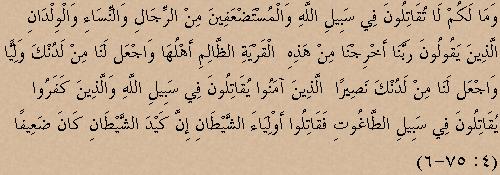 وَمَا لَكُمْ لَا تُقَاتِلُونَ فِي سَبِيلِ اللَّهِ وَالْمُسْتَضْعَفِينَ مِنْ الرِّجَالِ وَالنِّسَاءِ وَالْوِلْدَانِ
الَّذِينَ يَقُولُونَ رَبَّنَا أَخْرِجْنَا مِنْ هَذِهِ الْقَرْيَةِ الظَّالِمِ أَهْلُهَا وَاجْعَل لَنَا مِنْ لَدُنْكَ وَلِيًّا
وَاجْعَل لَنَا مِنْ لَدُنْكَ نَصِيرًا الَّذِينَ آمَنُوا يُقَاتِلُونَ فِي سَبِيلِ اللَّهِ وَالَّذِينَ كَفَرُوا
يُقَاتِلُونَ فِي سَبِيلِ الطَّاغُوتِ فَقَاتِلُوا أَوْلِيَاءَ الشَّيْطَانِ إِنَّ كَيْدَ الشَّيْطَانِ كَانَ ضَعِيفًا
(٤: ٧٥-٦)